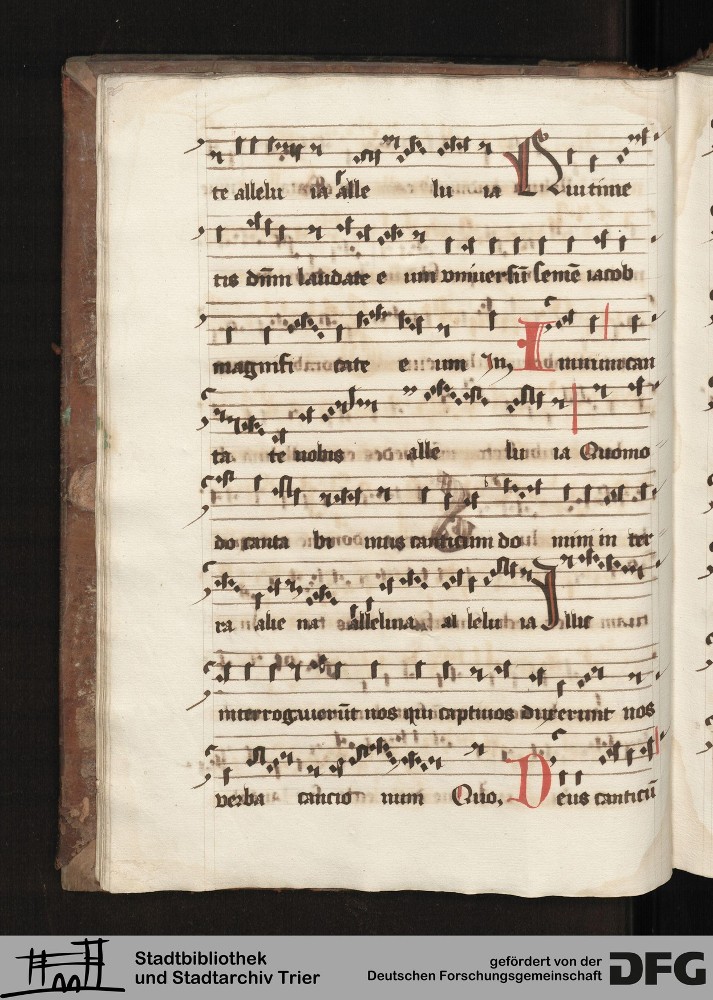 te allelu ia alle lu ia Qui time
tis dn̄m laudate e um vniuersū semē iacob
magnifi cate e um In, Ymnum can
ta te nobis alle lu ia Quomo
do canta bi mus canticum do mini in ter
ra alie na alleluia al lelu ia Illic
interrogauerūt nos qui captiuos duxerunt nos
verba cancio num Quo, Deus canticū
Stadtbibliothek
und Stadtarchiv Trier
gefördert von der
Deutschen Forschungsgemeinschaft
DFG